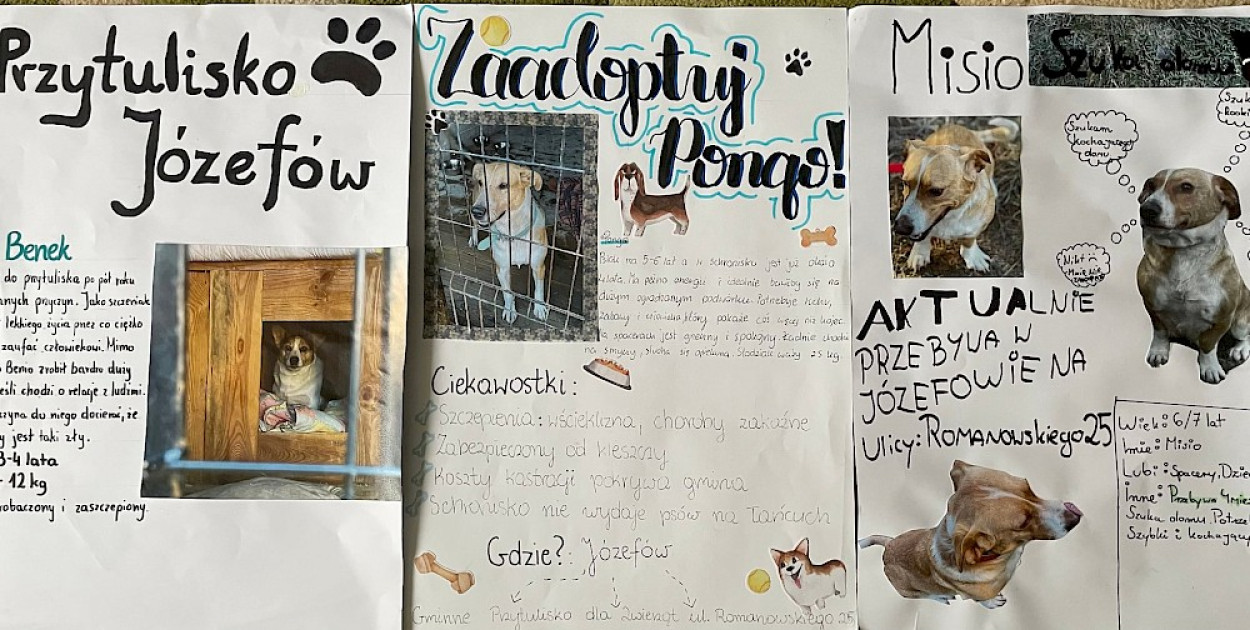 Przytulisko
Józefów
Benek
do przytuliska po pół roku
anych przyczyn. Jako szczeniak
lekkiego życia przez co ciężko
zaufać człowiekowi. Mimo
Benio zrobił bardzo duży
eśli chodzi o relacje z ludźmi.
zyna do niego docierać, że
y jest taki zły.
3-4 lata
- 12 kg
robaczony i zaszczepiony.
Zaadoptuj
Pongo!
Pongo
ma 5-6 lat a w schronisku jest już około
lata. Ma pełno energii i idealnie bawiłby się na
dużym ogrodzonym podwórku. Potrzebuje ruchu,
zabawy i człowieka, który pokaże coś więcej niż kojec.
a spacerach jest grzeczny i spokojny. Ładnie chodzi
na smyczy, słucha się opiekuna. Słodziak waży 25 kg.
Ciekawostki:
Szczepienia: wścieklizna, choroby zakaźne
Zabezpieczony od kleszczy
Koszty kastracji pokrywa gmina
Schronisko nie wydaje psów na łańcuch
Gdzie?: Józefów
Gminne Przytulisko dla Zwierząt ul. Romanowskiego 25
Misio
Szuka domu
Szukam
kochającego
domu
Nikt
mnie nie
AKTUALNIE
PRZEBYWA W
JÓZEFOWIE NA
Ulicy: ROMANOWSKIEGO 25
Wiek: 6/7 lat
Imię: Misio
Lubi: Spacery, Dzie
Inne: Przebywa 4 mie
Szuka domu. Potrze
Szybki i kochający